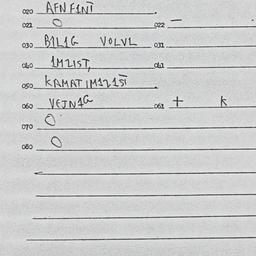 020 AFNF1NT
021 O 022 –
030 B1L1G VOLVL 031
040 1M21ST, 041
050 KAMAT1M121ST
060 VEJN1G 061 + k
070 O
080 O